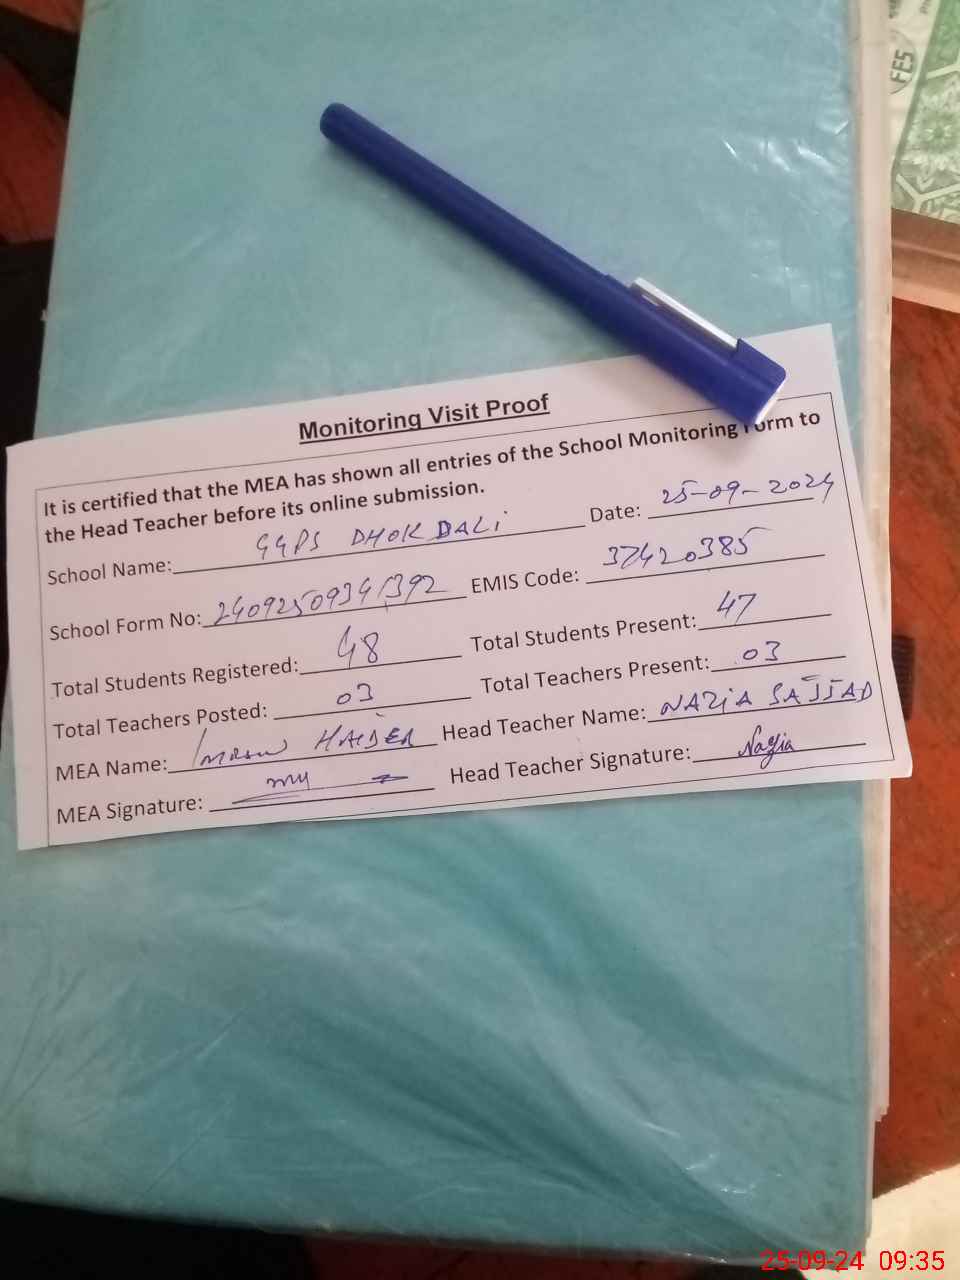 FES
Monitoring Visit Proof
It is certified that the MEA has shown all entries of the School Monitoring Form to
the Head Teacher before its online submission.
School Name: GGPS DHOK DALI Date: 25-09-2024
School Form No: 24092509341392 EMIS Code: 37420385
Total Students Registered: 48 Total Students Present: 47
Total Teachers Posted: 03 Total Teachers Present: 03
MEA Name: Imran HAIDER Head Teacher Name: NAZiA SAJJAD
MEA Signature: Head Teacher Signature: Nazia
25-09-24 09:35